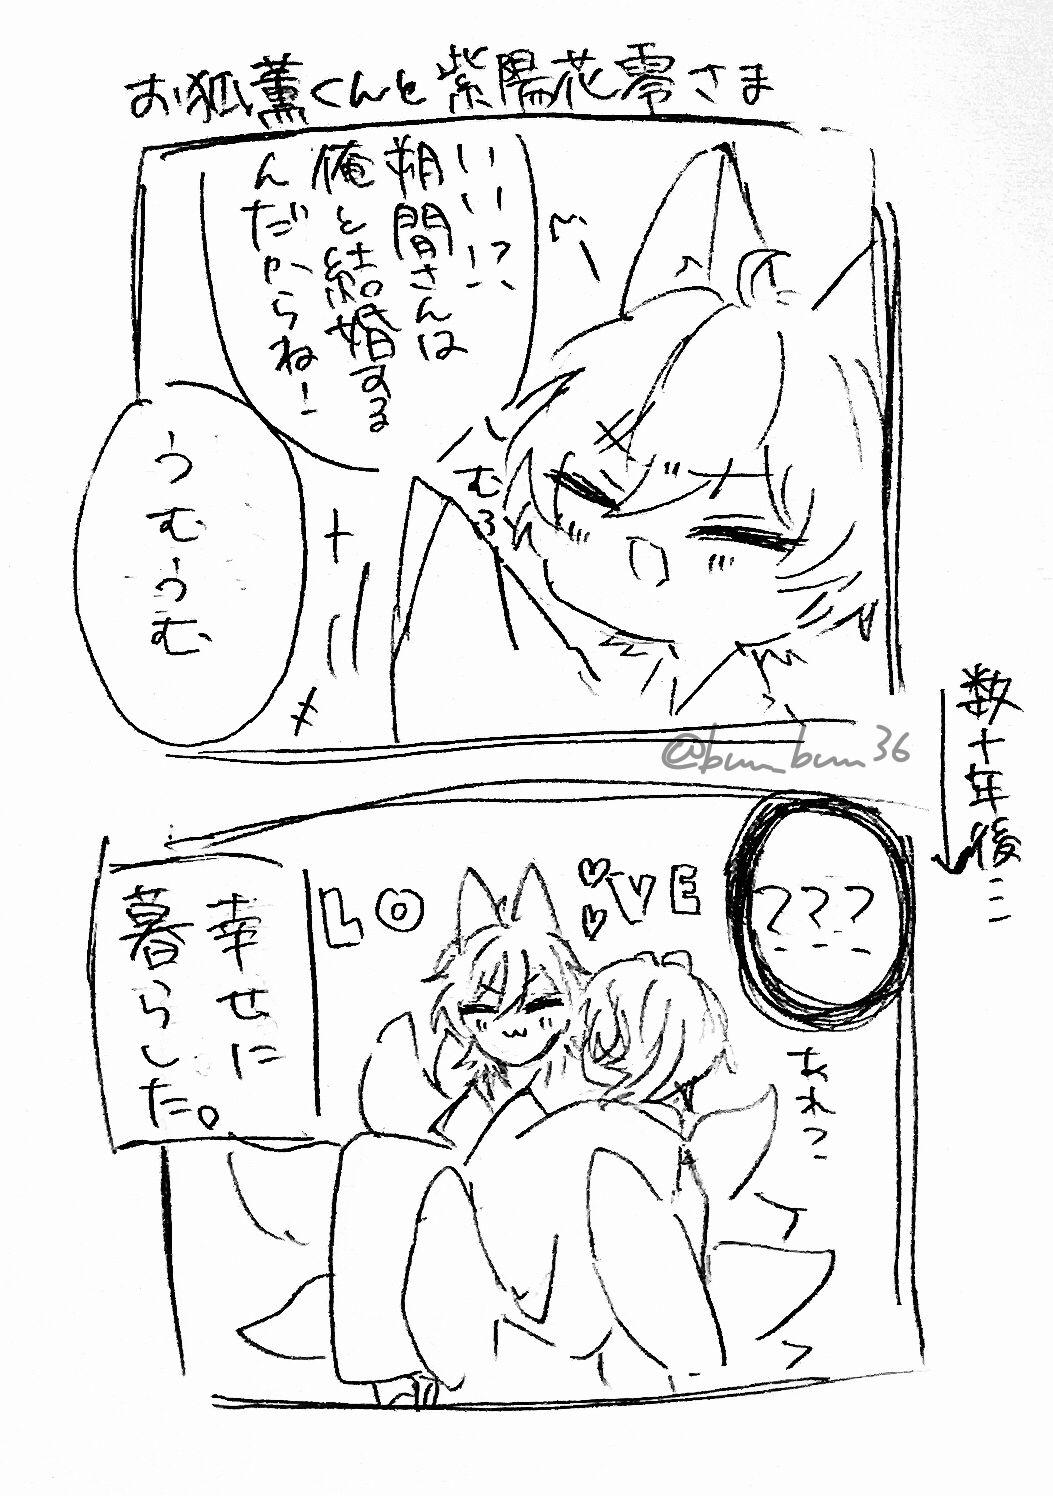 お狐薫くんと紫陽花零さま
いい!?
朔間さんは
俺と結婚する
んだからね!
むふ
うむうむ
@bum_bum36
数十年後…
LOVE
???
あれっ
幸せに
暮らした。